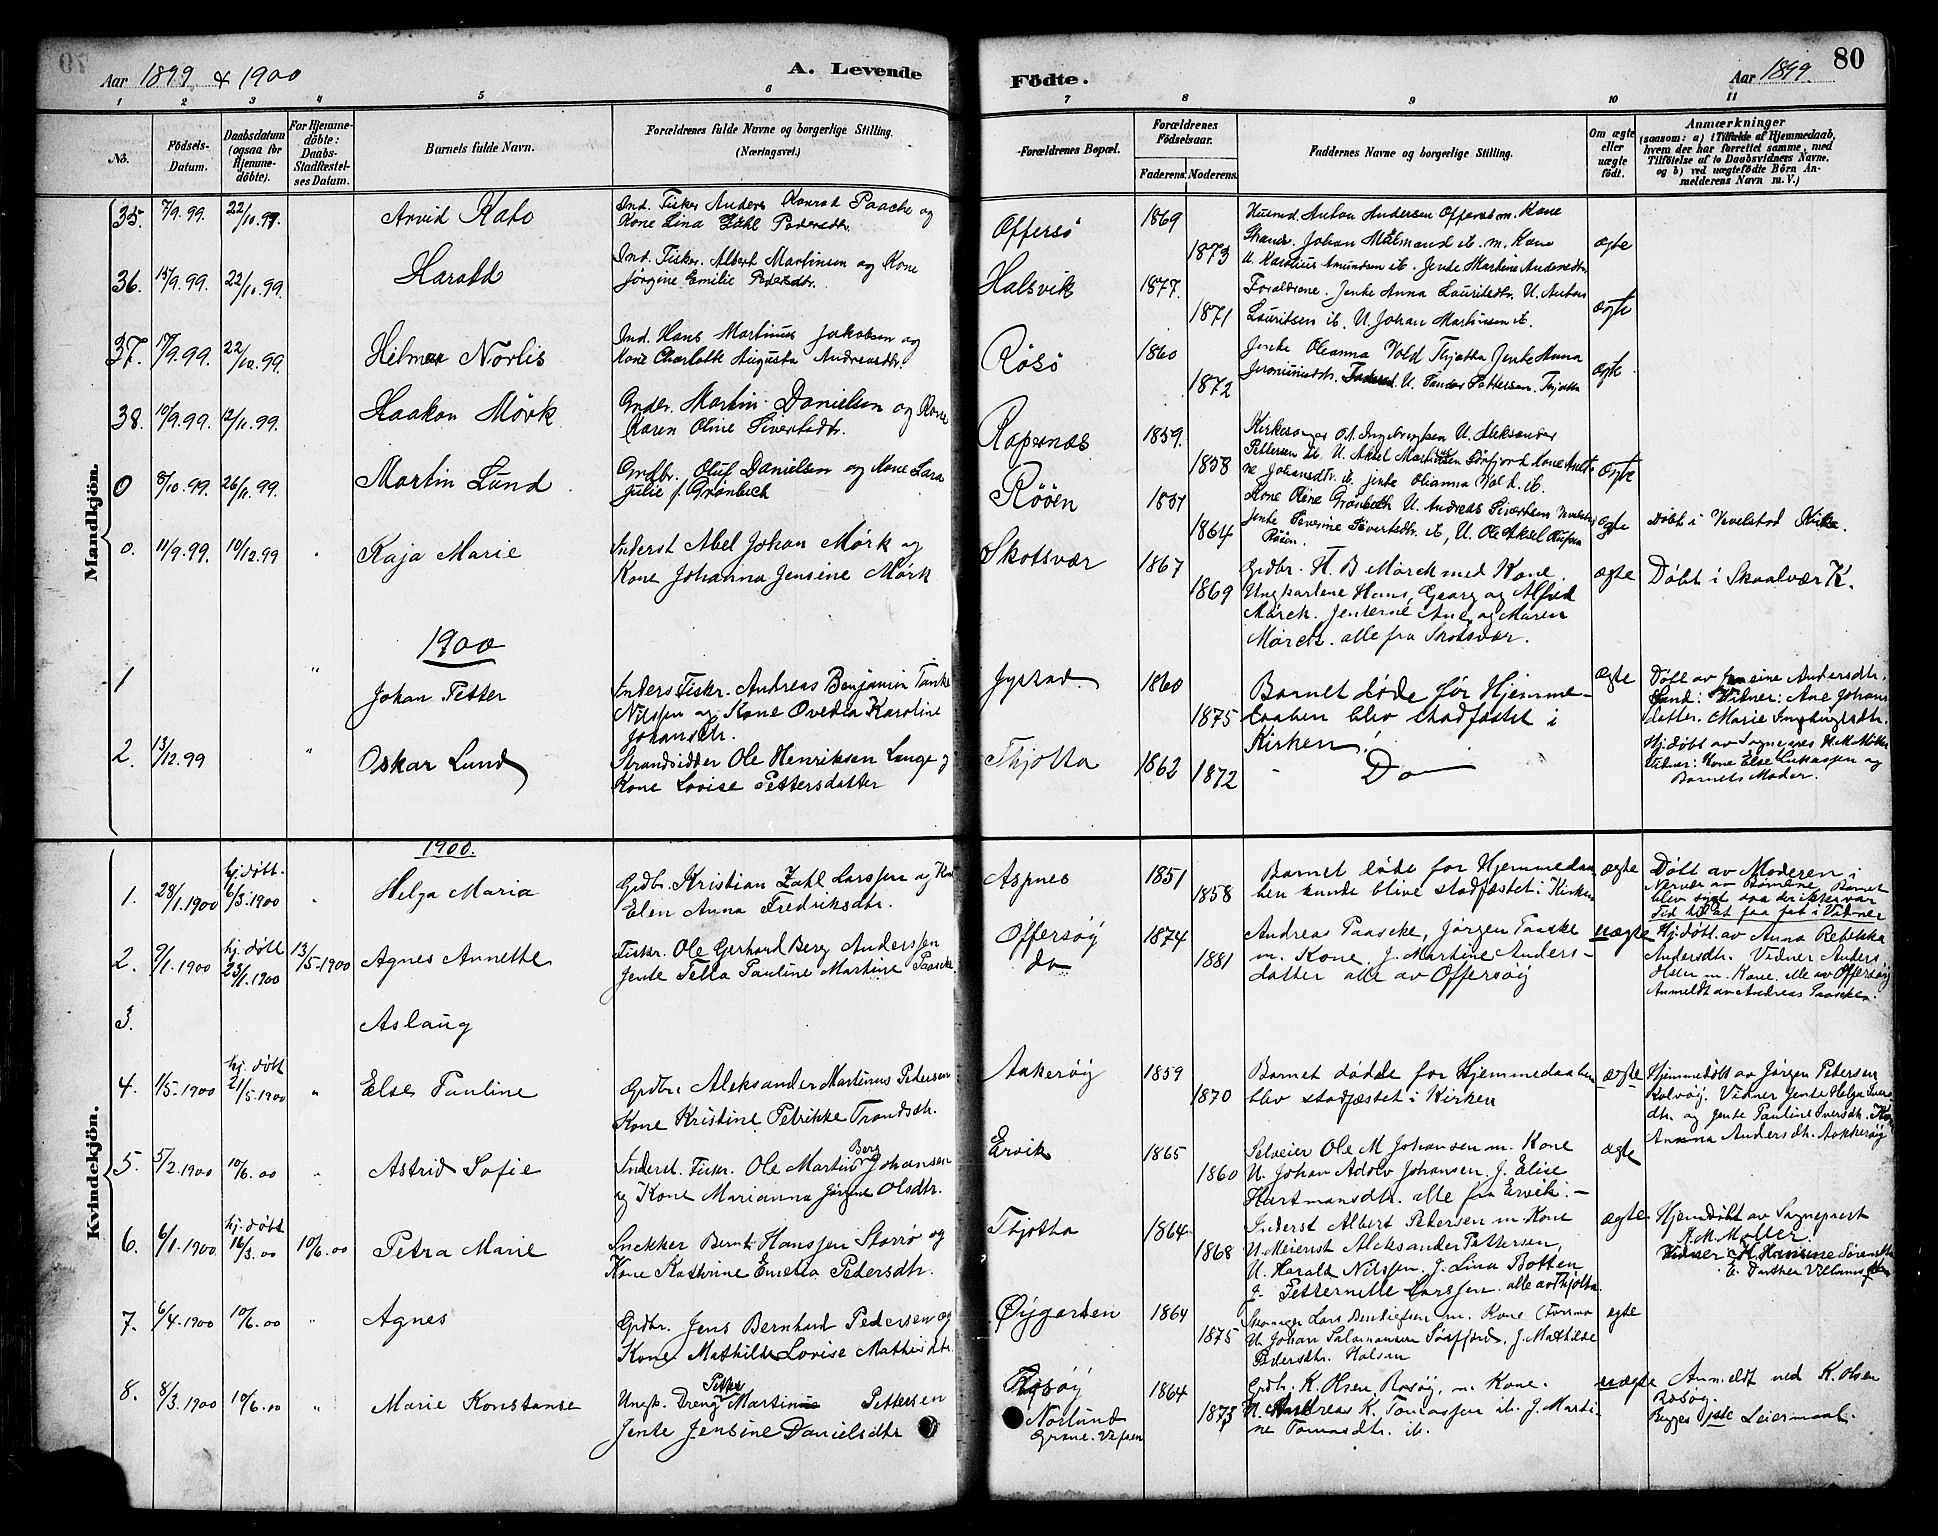 Aar 1899 & 1900
A. Levende
Födte.
Aar 1899.
80
1 2 3 4 5 6 7 8 9 10 11
No.
Födsels-
Datum.
Daabsdatum
(ogsaa for
Hjemme-
döbte).
For Hjemme-
döbte:
Daabs-
Stadfæstel-
ses Datum.
Barnets fulde Navn.
Forældrenes fulde Navne og borgerlige Stilling.
(Næringsvei.)
Forældrenes Bopæl.
Forældrenes
Födselsaar.
Faderens. Moderens.
Faddernes Navne og borgerlige Stilling.
Om ægte
eller
uægte
födt.
Anmærkninger
(saasom: a) i Tilfælde af Hjemmedaab,
hvem der har forrettet samme, med
Tilföielse af to Daabsvidners Navne,
og b) ved uægtefödte Börn An-
melderens Navn m. V.)
Mandkjön.
35. 7/9.99. 22/10.99. Arvid Kato
Ind. Fisker Anders Konrad Paache og
Kone Lina Zahl Pedersdtr.
Offersö 1869 1873
Husmd. Anton Andersen Offersö m. Kone
Strands. Johan Malmand ib. m. Kone
U. Karelius Amundsen ib. Jente Martine Andersdtr.
ægte
36. 15/9.99. 22/10.99. Harald
Ind. Fisker. Albert Martinsen og Kone
Jörgine Emilie Pedersdtr.
Halsvik 1877. 1871
Forældrene. Jente Anna Lauritsdtr. U. Anton
Lauritsen ib. U. Johan Martinsen ib.
ægte
37. 17/9.99. 22/10.99. Hilmar Norlis
Ind. Hans Martinus Jakobsen og
Kone Charlotte Augusta Andreasdtr.
Rösö 1860 1872
Jente Oleanna Vold Thjøtta Jente Anna
Jeronimusdtr. U. Sandor Pettersen. Thjøtta
ægte
38. 10/9.99. 12/11.99. Haakon Mörk
Inder. Martin Danielsen og Kone
Karen Oline Sivertsdtr.
Ragernæs 1859. 1858
Kirkesanger O.A. Ingebrigtsen U. Aleksander
Pettersen ib. U. Aksel Martinsen Sörfjord Kone Anet-
ne Johansdtr. ib. jente Olianna Vold. ib.
ægte
0 8/10.99. 26/11.99. Martin Lund
Grdbr. Oluf Danielsen og Kone Lara
Julie f. Grönbech
Rööen 1864
Kone Oline Grönbech U. Andreas Sivertsen
Jente Severine Sivertsdtr. ib, U. Ole Aksel
Rööen.
ægte
Döbt i Vevelstad Kirke.
0. 11/9.99. 10/12.99 Kaja Marie
Inderst Abel Johan Mørk og
Kone Johanna Jensine Mørk
Skotsvær 1867 1869
Grdbr. H. B Mørck med Kone.
Ungkarlene Hans, Georg og Alfred
Mørck. Jenterne Ane og Maren
Mørck. alle fra Skotsvær.
ægte
Döbt i Skaalvær K.
1900
1 " Johan Petter
Inders Fiskr. Andreas Benjamin Tanke
Nilssen og Kone Ovedia Karoline
Johansdtr.
1860 1875
Barnet døde før Hjemme-
daaben blev stadfæstet i
Kirken!
ægte
Døbt av Jensine Andersdtr.
Sund: Vidner: Ane Johans
datter. Marie
2. 13/12.99 " Oskar Lund
Strandsidder Ole Henriksen Lange og
Kone Lovise Pettersdatter
Thjøtta 1862 1872
- Do -
Hj.døbt av Sognepres H.M. Møller
Vidner: Kone Else Lukassen og
Barnets Moder.
Kvindekjön.
1900.
1. 28/1.1900 hj. døbt. 6/3.1900 Helga Maria
Grdbr. Kristian Zahl Larssen og Kone
Elen Anna Fredriksdtr.
Aspnes 1851 1858
Barnet døde før Hjemmedaa
ben kunde blive stadfæstet i Kirken
ægte
Døbt av Moderen i
Nærvær av Børnene. Barnet
blev sygt saa der ikke var
Tid til at faa fat i Vidner
2. 9/1.1900 hj. døbt 23/1.1900 13/5-1900 Agnes Annette
Fiskr. Ole Gerhard Berg Anderssen
Jente Tella Pauline Martine Paaske
Offersøy
do 1874 1881
Andreas Paaske, Jørgen Paaske
m. Kone. J. Martine Anders-
datter alle av Offersøy
uægte
Hj.døbt. av Anna Rebekka
Andersdtr. Vidner Anders
Olsen m. Kone, alle av Offersøy
Anmeldt av Andreas Paaske.
3. Aslaug
4. 1/5-1900 hj. døbt 21/5.1900 " Else Pauline
Grdbr. Aleksander Martinus Pedersen
Kone Kristine Petrikke Trondsdtr.
Aakerøy 1859 1870
Barnet døde før Hjemmedaaben
blev stadfæstet i Kirken
ægte
Hjemmedøbt av Jørgen Pedersen
Kalvøy. Vidner Jente Helga Ivers
dtr. og Jente Pauline Iversdtr. Kone
Anna Andersdtr. Aakerøy
5. 5/2.1900 10/6.00 Astrid Sofie
Inderst. Fiskr. Ole Martin Berg Johansen
og Kone Marianna Jørgine Olsdtr.
Ervik 1865 1860
Selveier Ole M Johansen m. Kone
U. Johan Adolv Johansen, J. Elise
Hartmansdtr. alle fra Ervik. -
ægte
6. 6/1.1900 hj. døbt 16/3.00 10/6.00 Petra Marie
Snekker Bernt Hanssen Storrø og
Kone Kathrine Emelia Pedersdtr.
Thjøtta 1864 1868
Inderst Albert Pedersen m. Kone
U. Meierist Aleksander Pettersen,
U. Harald Nilssen, J. Lina Botten
J. Petternelle Larssen. alle av Thjøtta
ægte
Hjemdøbt av Sognepræst
H.M. Møller.
Vidner
7. 6/4.1900 10/6.00 " Agnes
Grdbr. Jens Bernhard Pedersen og
Kone Mathilde Lovise Mathisdtr.
Øygarden 1864 1875
Lars Bentiefsen m. Kone
U. Johan Salamonsen Sørfjord, J. Mathilde
Pedersdtr. Halsan
ægte
8. 8/3.1900 10/6.00 " Marie Konstanse
Ungk. Dreng Petter Martinus Pettersen
Jente Jensine Danielsdtr
Rosøy
Norlund
Grane. Vefsen 1864 1873
Grdbr. K. Olsen, Rosøy, m. Kone.
U. Andreas K. Tomassen ib. J. Marti-
ne Tomasdtr. ib.
uægte
Anmeldt ved K. Olsen
Rosøy.
Begges 1ste Leiermaal.